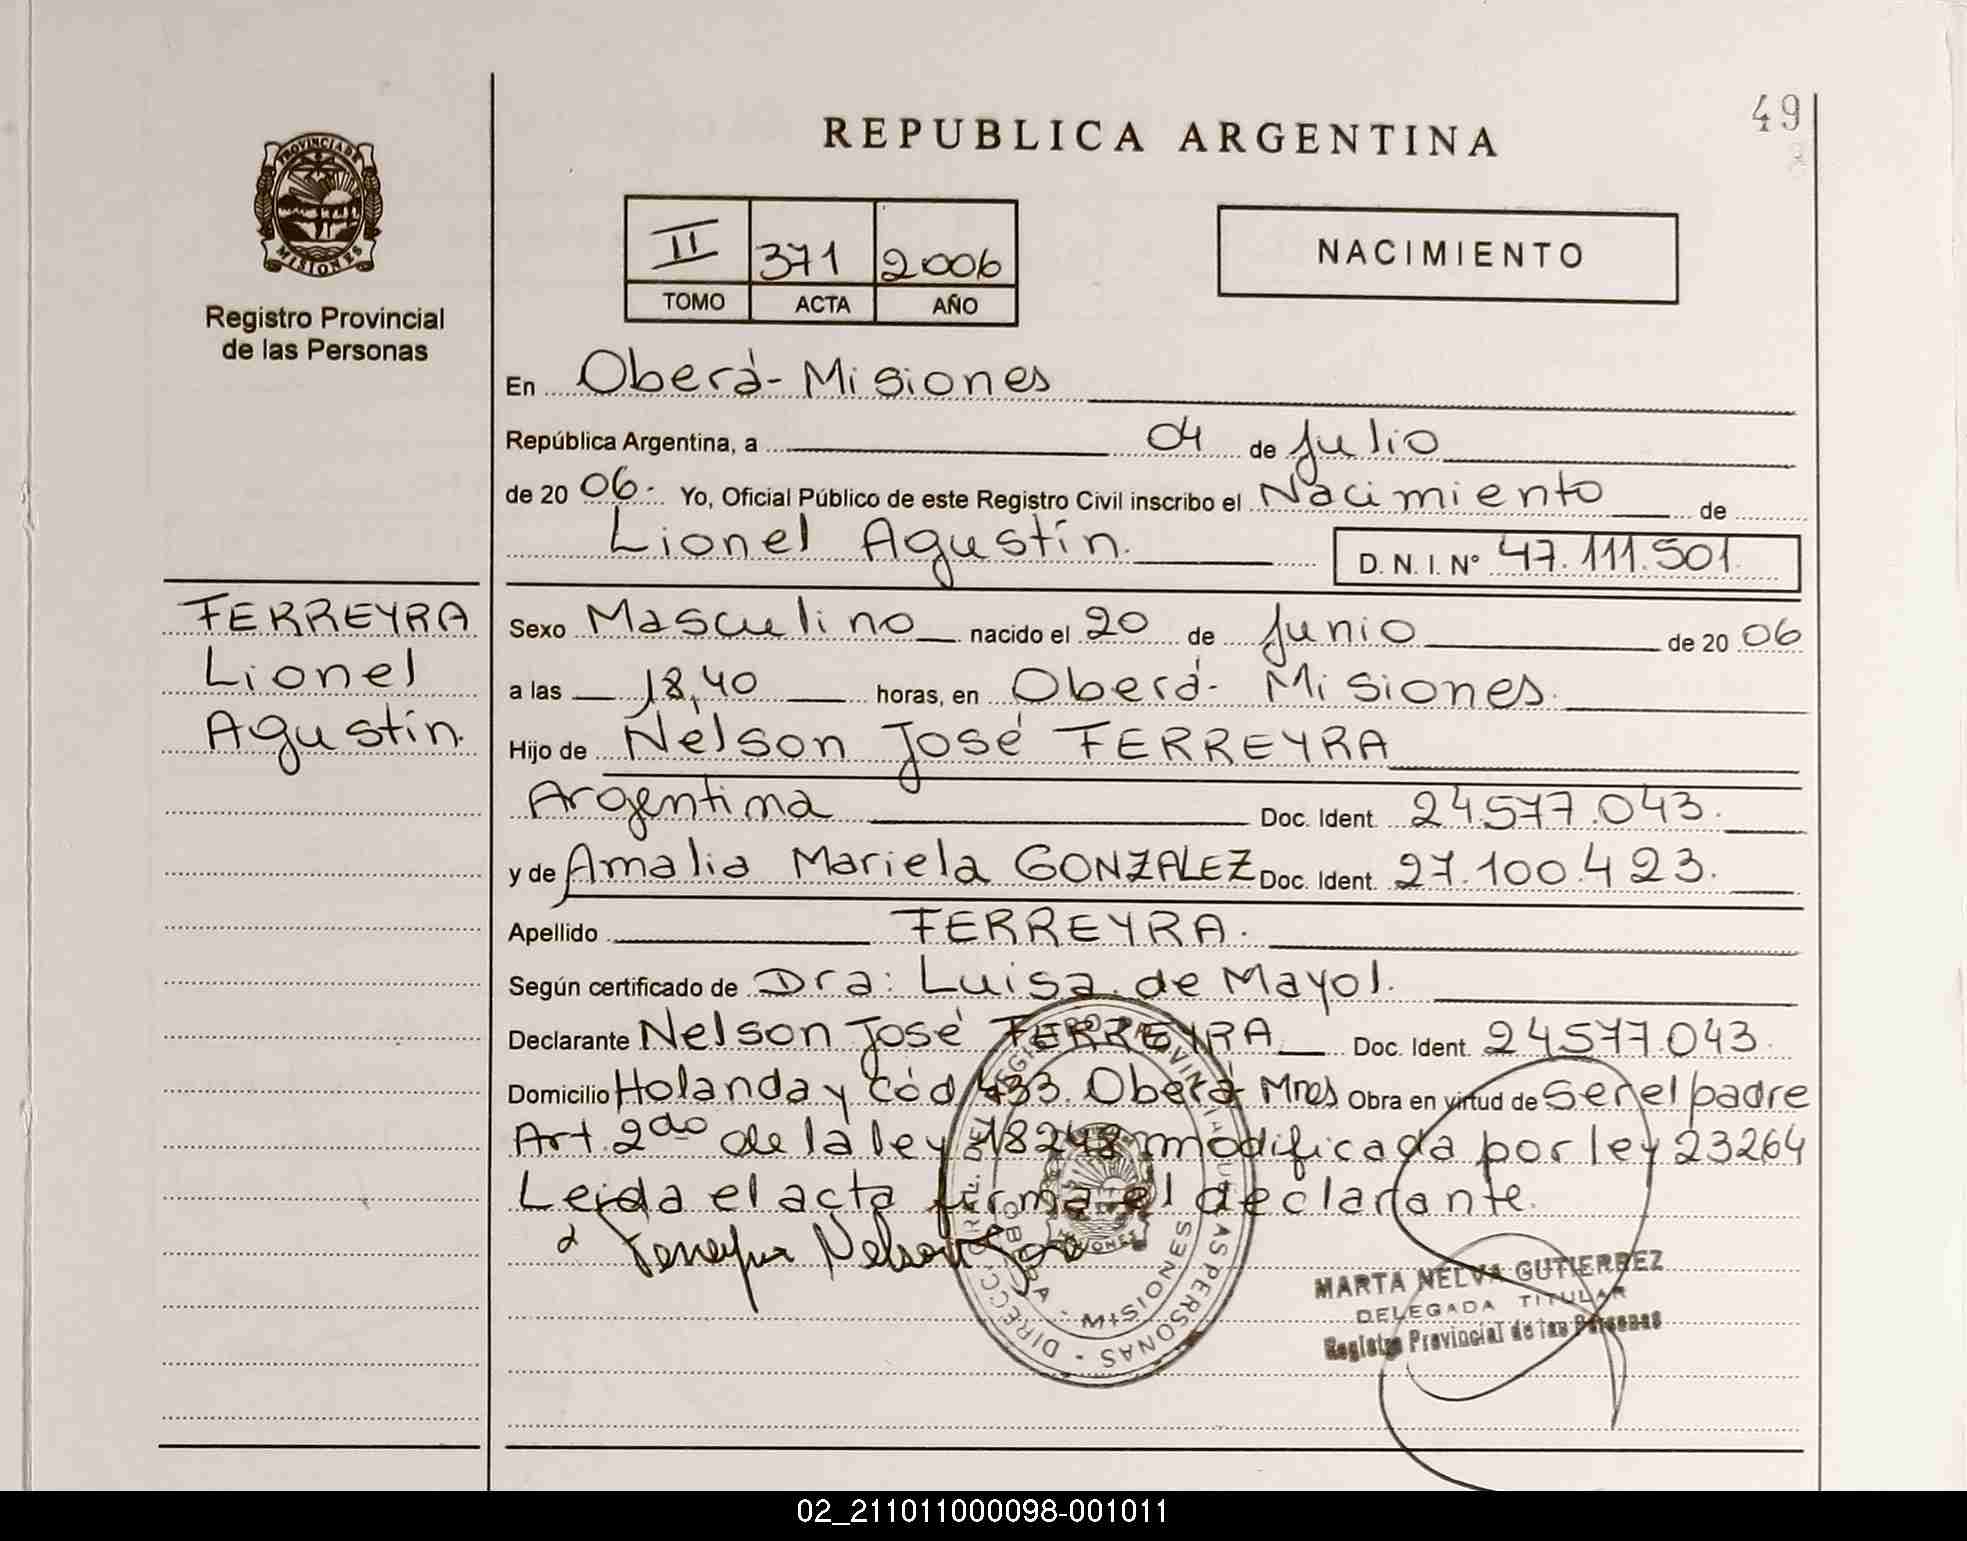 49
REPUBLICA ARGENTINA
PROVINCIA DE
MISIONES
Registro Provincial
de las Personas
II 371 2006
TOMO ACTA AÑO
NACIMIENTO
En Oberá - Misiones
República Argentina, a 04 de Julio
de 20 06.- Yo, Oficial Público de este Registro Civil inscribo el Nacimiento de
Lionel Agustín.
D. N. I. Nº 47.111.501.
FERREYRA
Lionel
Agustín.
Sexo Masculino nacido el 20 de Junio de 20 06
a las 18,40 horas, en Oberá - Misiones.
Hijo de Nelson José FERREYRA
Argentina Doc. Ident. 24.577.043.
y de Amalia Mariela GONZALEZ Doc. Ident. 27.100.423.
Apellido FERREYRA.
Según certificado de Dra: Luisa de Mayol.
Declarante Nelson José FERREYRA Doc. Ident. 24577.043.
Domicilio Holanda y Cód 433. Oberá Mnes Obra en virtud de ser el padre
Art. 2do de la ley 18248 modificada por ley 23264
Leida el acta firma el declarante.
Ferreyra Nelson José
DIRECC. GRAL. DEL REGISTRO PROVINCIAL DE LAS PERSONAS
OBERA - MISIONES
MARTA NELVA GUTIERREZ
DELEGADA TITULAR
Registro Provincial de las Personas
02_211011000098-001011